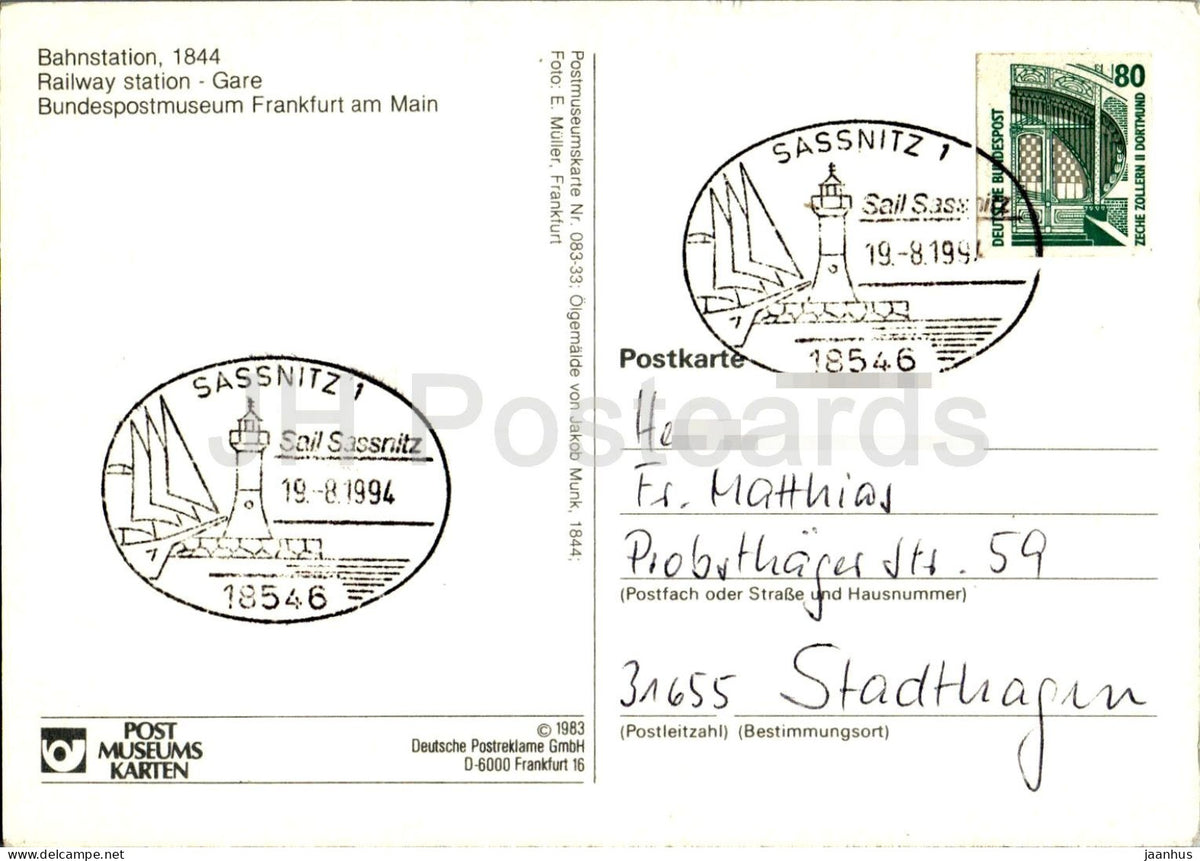 Bahnstation, 1844
Railway station - Gare
Bundespostmuseum Frankfurt am Main
SASSNITZ 1
Sail Sassnitz
19.-8.1994
18546
POST
MUSEUMS
KARTEN
© 1983
Deutsche Postreklame GmbH
D-6000 Frankfurt 16
Postmuseumskarte Nr. 083-33; Ölgemälde von Jakob Munk, 1844;
Foto: E. Müller, Frankfurt
80
DEUTSCHE BUNDESPOST
ZECHE ZOLLERN II DORTMUND
SASSNITZ 1
Sail Sassnitz
19.-8.1994
18546
Postkarte
Fr. Matthias
Probsthäger Str. 59
(Postfach oder Straße und Hausnummer)
31655 Stadthagen
(Postleitzahl) (Bestimmungsort)
JH Postcards
jaanhus